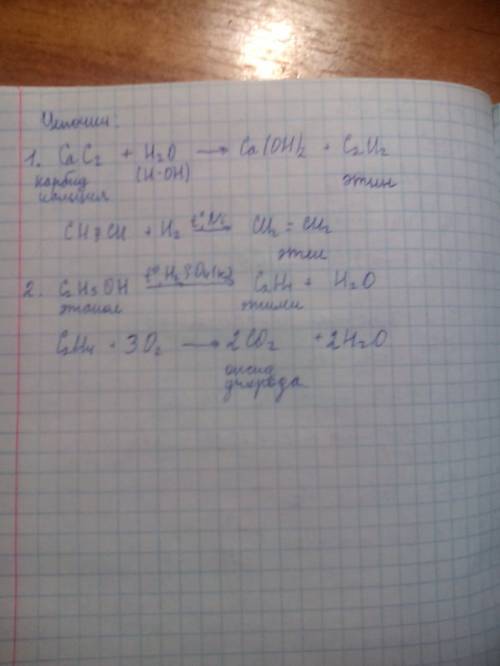 Цепочки:
1. CaC2 + H2O → Ca(OH)2 + C2H2
карбид (H-OH) этин
кальция
CH≡CH + H2 t°,Ni → CH2 = CH2
этен
2. C2H5OH t°, H2SO4(к) → C2H4 + H2O
этанол
C2H4 + 3O2 → 2CO2 + 2H2O
оксид
углерода